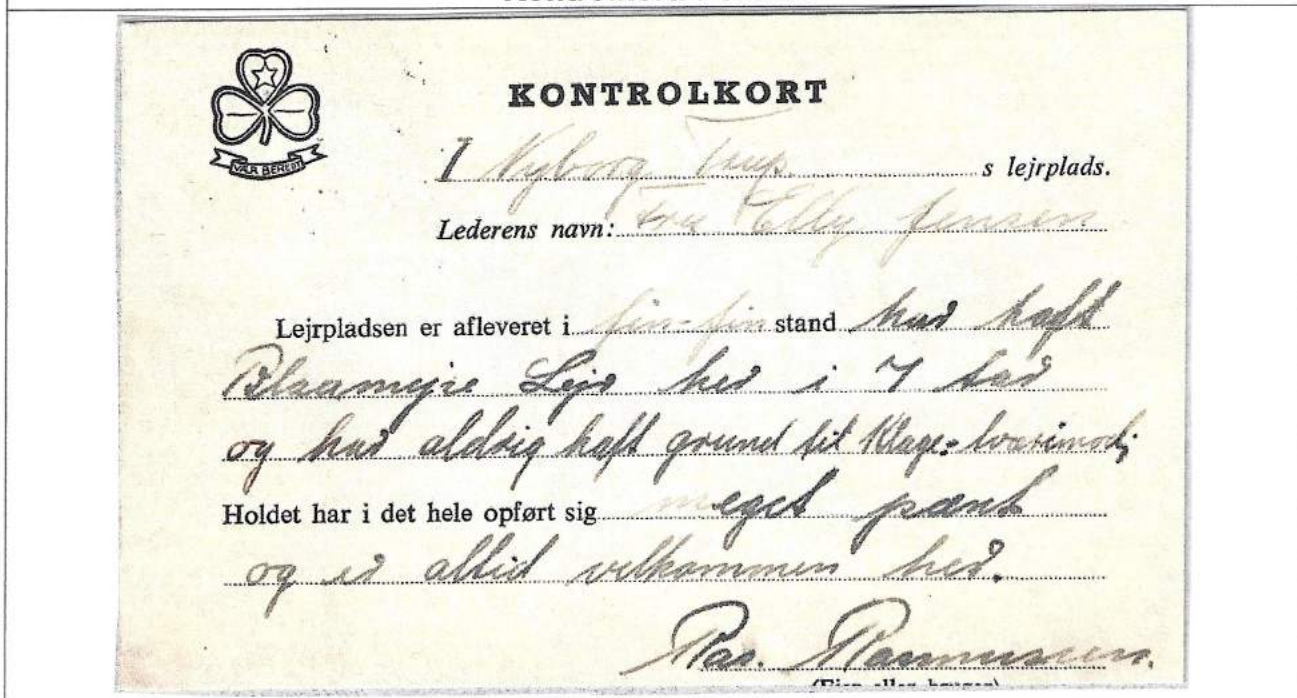 KONTROLKORT
VÆR BEREDT
I Nyborg Trup s lejrplads.
Lederens navn: Fru Elly Jensen
Lejrpladsen er afleveret i fin-fin stand har haft
Blaamejse Lejr her i 7 Aar
og har aldrig haft grund til Klage- tværimod;
Holdet har i det hele opført sig meget pænt
og er altid velkommen her.
Ras. Rasmussen.
(Ejer eller bruger)